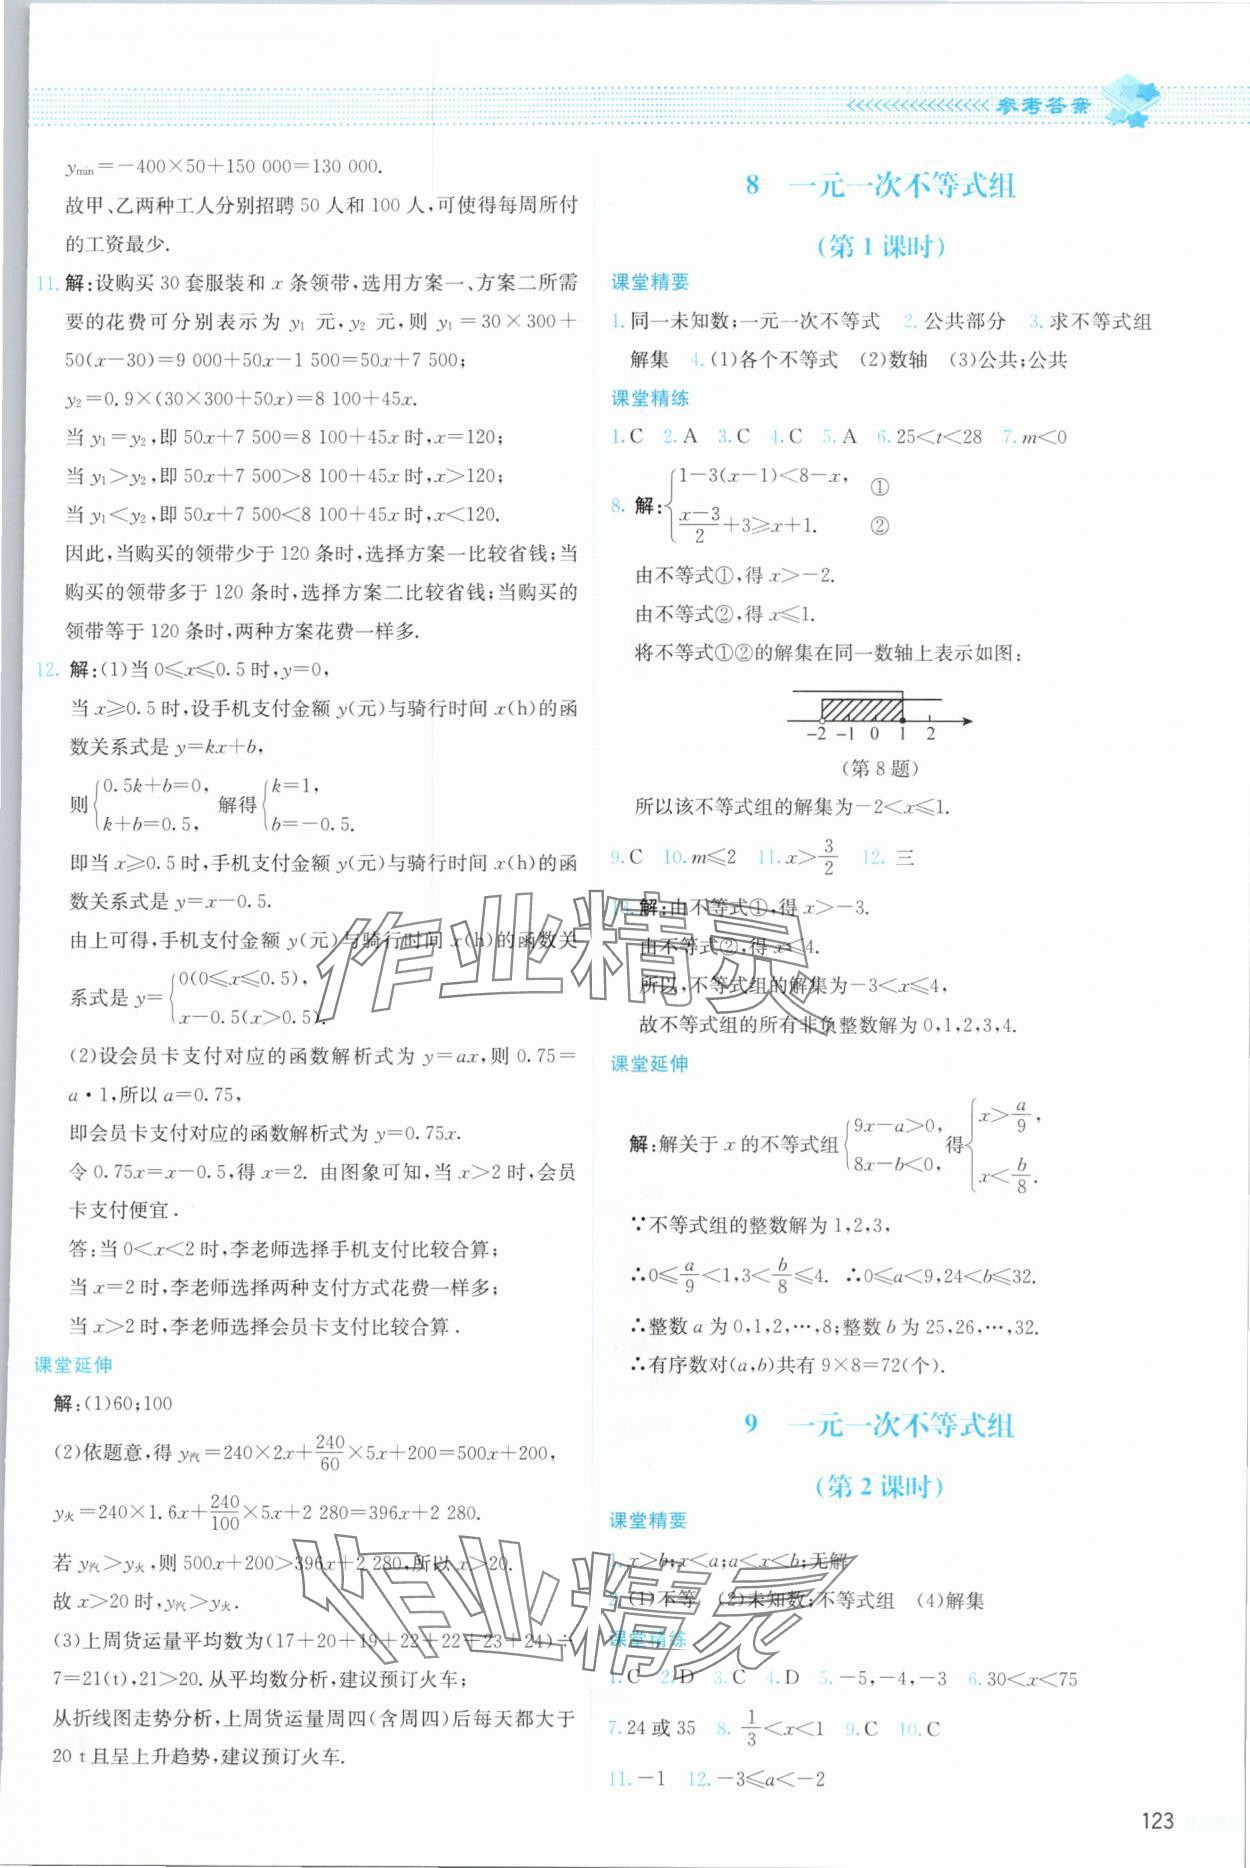 参考答案
y_min=-400×50+150 000=130 000.
故甲、乙两种工人分别招聘 50 人和 100 人,可使得每周所付
的工资最少.
11. 解:设购买 30 套服装和 x 条领带,选用方案一、方案二所需
要的花费可分别表示为 y₁ 元,y₂ 元,则 y₁=30×300+
50(x-30)=9 000+50x-1 500=50x+7 500;
y₂=0.9×(30×300+50x)=8 100+45x.
当 y₁=y₂,即 50x+7 500=8 100+45x 时,x=120;
当 y₁>y₂,即 50x+7 500>8 100+45x 时,x>120;
当 y₁<y₂,即 50x+7 500<8 100+45x 时,x<120.
因此,当购买的领带少于 120 条时,选择方案一比较省钱;当
购买的领带多于 120 条时,选择方案二比较省钱;当购买的
领带等于 120 条时,两种方案花费一样多.
12. 解:(1)当 0≤x≤0.5 时,y=0,
当 x≥0.5 时,设手机支付金额 y(元)与骑行时间 x(h)的函
数关系式是 y=kx+b,
则{0.5k+b=0, k+b=0.5, 解得{k=1, b=-0.5.
即当 x≥0.5 时,手机支付金额 y(元)与骑行时间 x(h)的函
数关系式是 y=x-0.5.
由上可得,手机支付金额 y(元)与骑行时间 x(h)的函数关
系式是 y={0(0≤x≤0.5), x-0.5(x>0.5).
(2)设会员卡支付对应的函数解析式为 y=ax,则 0.75=
a·1,所以 a=0.75,
即会员卡支付对应的函数解析式为 y=0.75x.
令 0.75x=x-0.5,得 x=2. 由图象可知,当 x>2 时,会员
卡支付便宜.
答:当 0<x<2 时,李老师选择手机支付比较合算;
当 x=2 时,李老师选择两种支付方式花费一样多;
当 x>2 时,李老师选择会员卡支付比较合算.
课堂延伸
解:(1)60;100
(2)依题意,得 y汽=240×2x+240/60×5x+200=500x+200,
y火=240×1.6x+240/100×5x+2 280=396x+2 280.
若 y汽>y火,则 500x+200>396x+2 280,所以 x>20.
故 x>20 时,y汽>y火.
(3)上周货运量平均数为(17+20+19+22+22+23+24)÷
7=21(t),21>20. 从平均数分析,建议预订火车;
从折线图走势分析,上周货运量周四(含周四)后每天都大于
20 t 且呈上升趋势,建议预订火车.
8 一元一次不等式组
(第 1 课时)
课堂精要
1. 同一未知数;一元一次不等式 2. 公共部分 3. 求不等式组
解集 4. (1)各个不等式 (2)数轴 (3)公共;公共
课堂精练
1. C 2. A 3. C 4. C 5. A 6. 25<t<28 7. m<0
8. 解:{1-3(x-1)<8-x, ①
(x-3)/2+3≥x+1. ②
由不等式①,得 x>-2.
由不等式②,得 x≤1.
将不等式①②的解集在同一数轴上表示如图:
-2 -1 0 1 2
(第 8 题)
所以该不等式组的解集为-2<x≤1.
9. C 10. m≤2 11. x>3/2 12. 三
13. 解:由不等式①,得 x>-3.
由不等式②,得 x≤4.
所以,不等式组的解集为-3<x≤4,
故不等式组的所有非负整数解为 0,1,2,3,4.
课堂延伸
解:解关于 x 的不等式组{9x-a>0, 8x-b<0, 得{x>a/9, x<b/8.
∵不等式组的整数解为 1,2,3,
∴0≤a/9<1,3<b/8≤4. ∴0≤a<9,24<b≤32.
∴整数 a 为 0,1,2,…,8;整数 b 为 25,26,…,32.
∴有序数对(a,b)共有 9×8=72(个).
9 一元一次不等式组
(第 2 课时)
课堂精要
1. x>b;x<a;a<x<b;无解
2. (1)不等 (2)未知数;不等式组 (4)解集
课堂精练
1. C 2. D 3. C 4. D 5. -5,-4,-3 6. 30<x<75
7. 24 或 35 8. 1/3<x<1 9. C 10. C
11. -1 12. -3≤a<-2
123
作业精灵
作业精灵